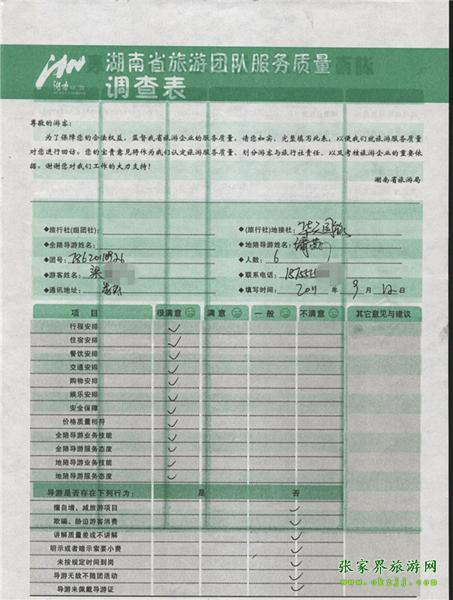 湖南省旅游团队服务质量
调查表
尊敬的游客:
为了保障您的合法权益,监督我省旅游企业的服务质量,请您如实、完整填写此表,以便我们就旅游服务质量
对您进行回访。您的宝贵意见将作为我们认定旅游服务质量、划分游客与旅行社责任、以及考核旅游企业的重要依
据。谢谢您对我们工作的大力支持!
湖南省旅游局
◆旅行社(组团社): ◆(旅行社)地接社:
◆全陪导游姓名: ◆地陪导游姓名:
◆团号: ◆人数: 6
◆游客姓名: 梁 ◆联系电话:
◆通讯地址: ◆填写时间: 2011 年 9 月 12 日
项 目 很满意 满意 一般 不满意 其它意见与建议
行程安排 ✓
住宿安排 ✓
餐饮安排 ✓
交通安排 ✓
购物安排 ✓
娱乐安排 ✓
安全保障 ✓
价格质量相符 ✓
全陪导游业务技能 ✓
全陪导游服务态度 ✓
地陪导游业务技能 ✓
地陪导游服务态度 ✓
导游是否存在下列行为: 是 否
擅自增、减旅游项目 ✓
欺骗、胁迫游客消费 ✓
讲解质量差或不讲解 ✓
明示或者暗示索要小费 ✓
未按规定时间到岗 ✓
导游无故不随团活动 ✓
导游未佩戴导游证 ✓
张家界旅游网
www.okzjj.com